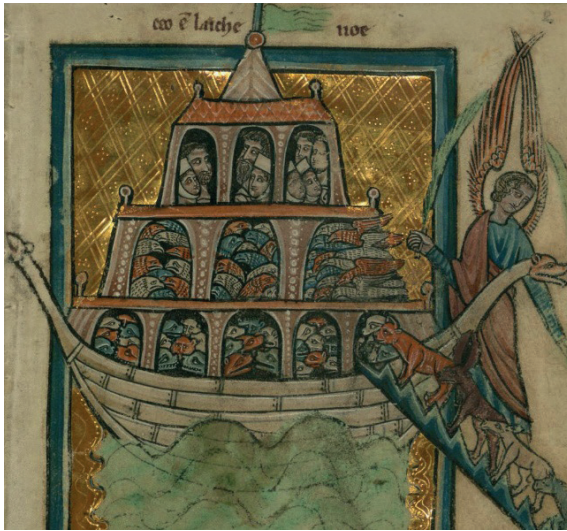 ceo ē larche noe